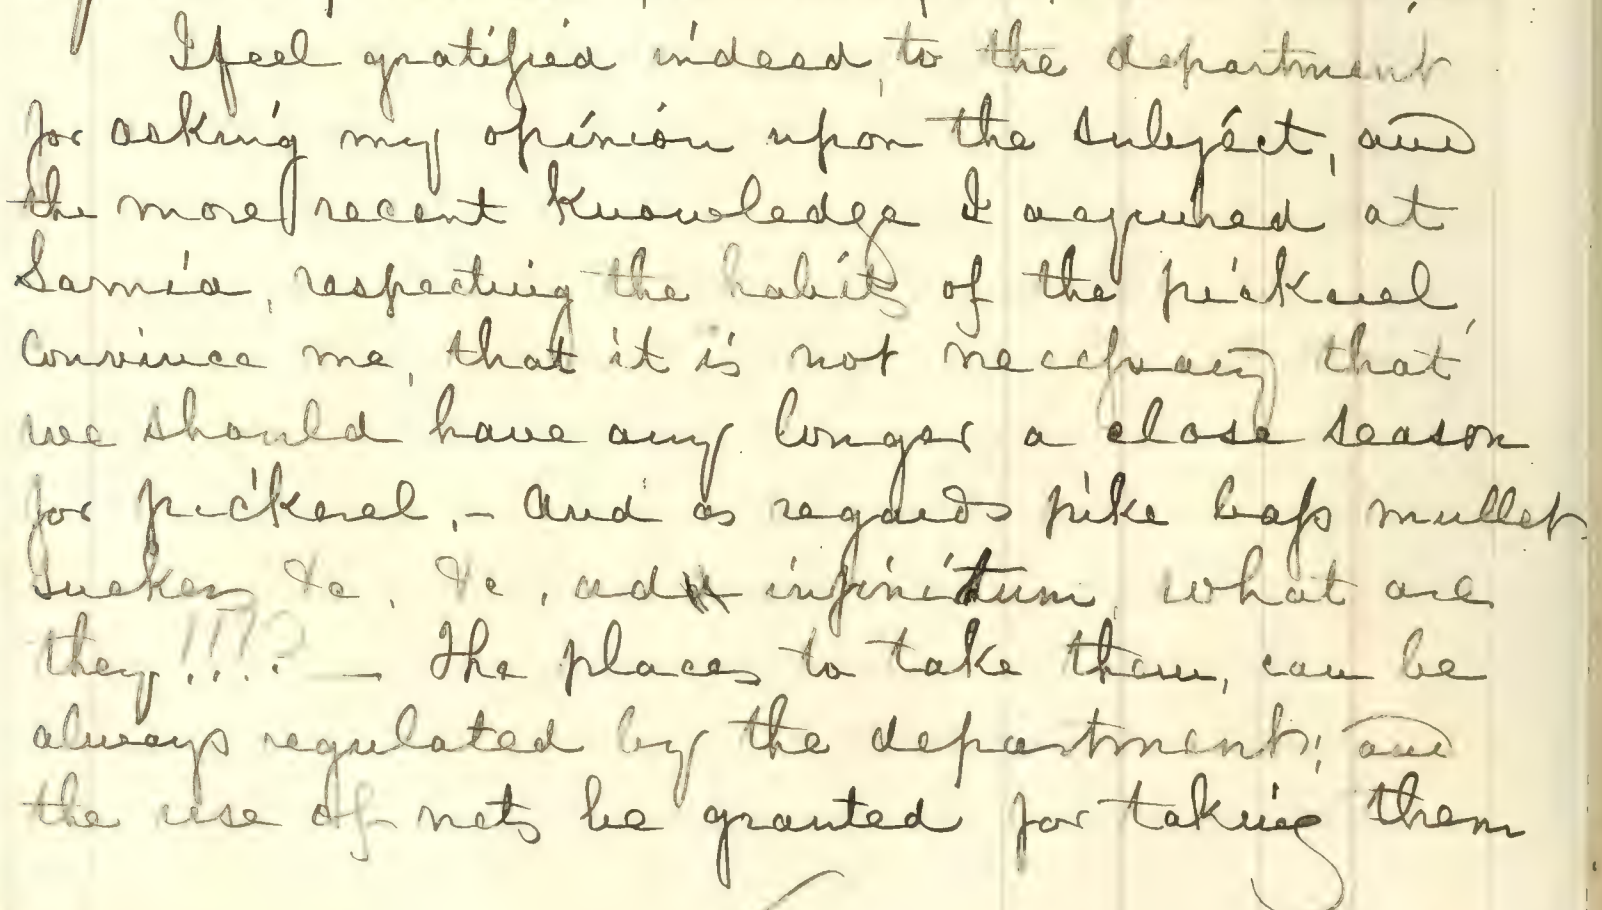 I feel gratified indeed, to the department
for asking my opinion upon the subject, and
the more recent knowledge I acquired at
Sarnia, respecting the habits of the pickerel,
convince me, that it is not necessary that
we should have any longer a close season
for pickerel, - and as regards pike bass mullet
sucker &c, &c, ad infinitum, what are
they!!!? - The places to take them, can be
always regulated by the department; and
the use of nets be granted for taking them